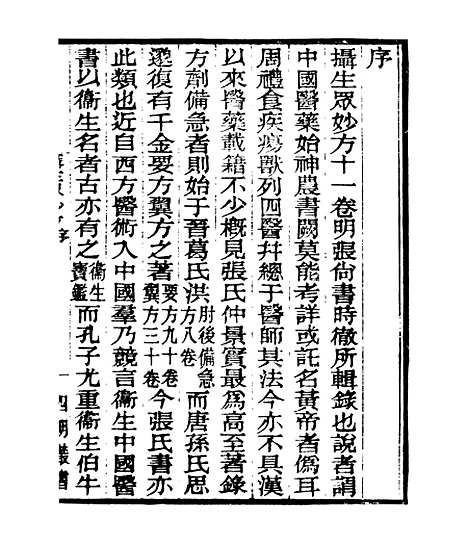 序
攝生眾妙方十一卷明張尙書時徹所輯錄也說者謂
中國醫藥始神農書闕莫能考詳或託名黃帝者僞耳
周禮食疾瘍獸列四醫幷總于醫師其法今亦不具漢
以來醫藥載籍不少槪見張氏仲景實最爲高至著錄
方劑備急者則始于晉葛氏洪肘後備急方八卷而唐孫氏思
邈復有千金要方翼方之著要方九十卷翼方三十卷今張氏書亦
此類也近自西方醫術入中國羣乃競言衞生中國醫
書以衞生名者古亦有之衞生寶鑑而孔子尤重衞生伯牛
序
一
四明叢書